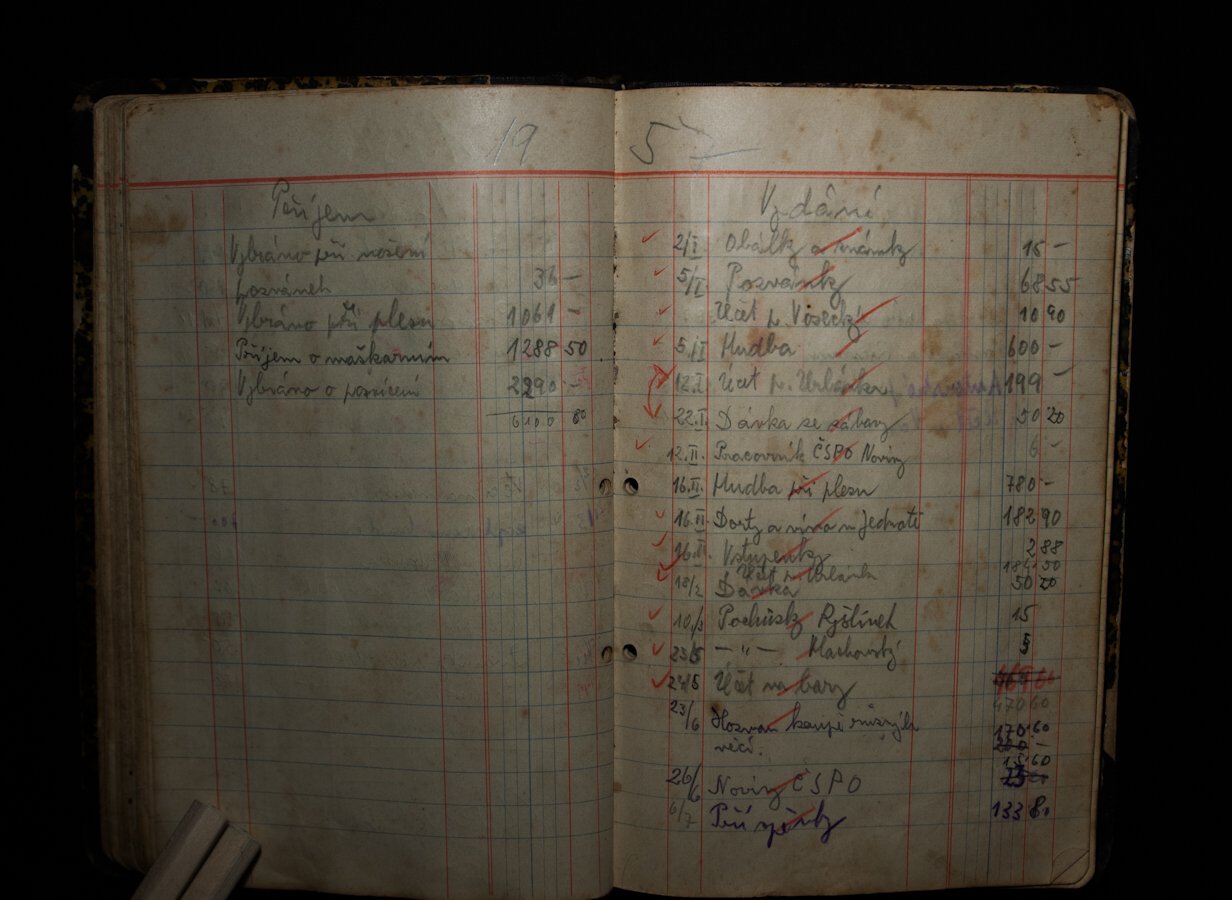 19
Příjem
Vybráno při nošení
pozvánek 36 –
Vybráno při plesu 1061 –
Příjem o maškarním 1288 50
Vybráno o posvícení 2290 –
6100 80
5
Vydání
2/I Obálky a známky 15 –
5/I Pozvánky 68 55
Účet p. Vosecký 10 90
5/I Hudba 600 –
12.I Účet p. Urbánka 199 –
22.I. Dávka ze zábavy 50 20
12.II. Pracovník ČSPO Noviny 6 –
16.II. Hudba při plesu 780 –
16.II. Dorty a víno u Jednoty 182 90
16.II. Vstupenky 2 88
Účet p. Urbánka 184 50
18/2 Dávka 50 20
10/3 Pochůzky Rýštínek 15
23/5 – " – Machovský 5
24/5 Účet na barvy 469 60
470 60
23/6 koupě různých 170 60
věcí.
15 60
26/6 Noviny ČSPO
6/7 Příspěvky 133 80